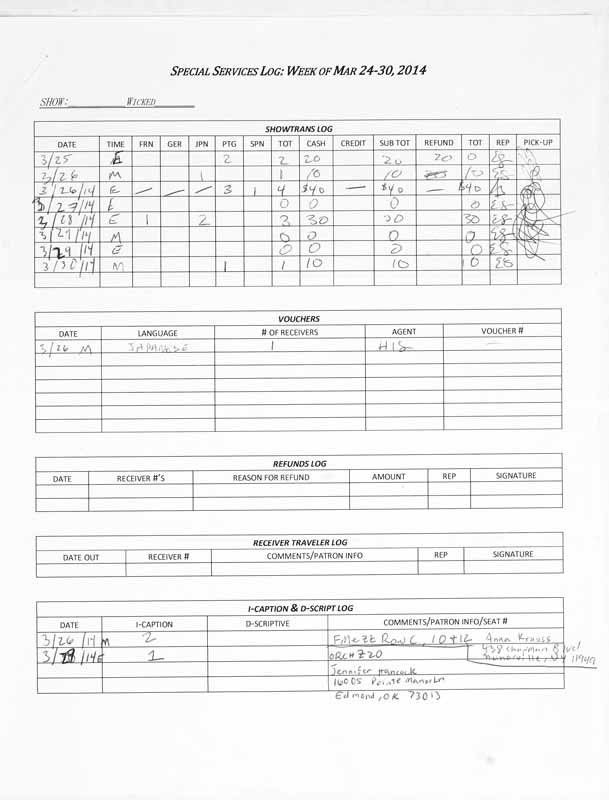 SPECIAL SERVICES LOG: WEEK OF MAR 24-30, 2014
SHOW: WICKED
SHOWTRANS LOG
DATE TIME FRN GER JPN PTG SPN TOT CASH CREDIT SUB TOT REFUND TOT REP PICK-UP
3/25 E 2 2 20 20 20 0 ES
3/26 M 1 1 10 10 10 ES
3/26/14 E — — — 3 1 4 $40 — $40 — $40
3/27/14 E 0 0 0 0 ES
3/28/14 E 1 2 3 30 30 30 ES
3/29/14 M 0 0 0 0 ES
3/29/14 E 0 0 0 0 ES
3/30/14 M 1 1 10 10 10 ES
VOUCHERS
DATE LANGUAGE # OF RECEIVERS AGENT VOUCHER #
3/26 M JAPANESE 1 HIS —
REFUNDS LOG
DATE RECEIVER #'S REASON FOR REFUND AMOUNT REP SIGNATURE
RECEIVER TRAVELER LOG
DATE OUT RECEIVER # COMMENTS/PATRON INFO REP SIGNATURE
I-CAPTION & D-SCRIPT LOG
DATE I-CAPTION D-SCRIPTIVE COMMENTS/PATRON INFO/SEAT #
3/26/14 M 2 Row C, 10+12 Anna Krauss
438 Chapman Blvd
3/ /14 E 1 ORCH Z20 Manorville, NY 11949
Jennifer Hancock
16005 Pointe Manor Ln
Edmond, OK 73013